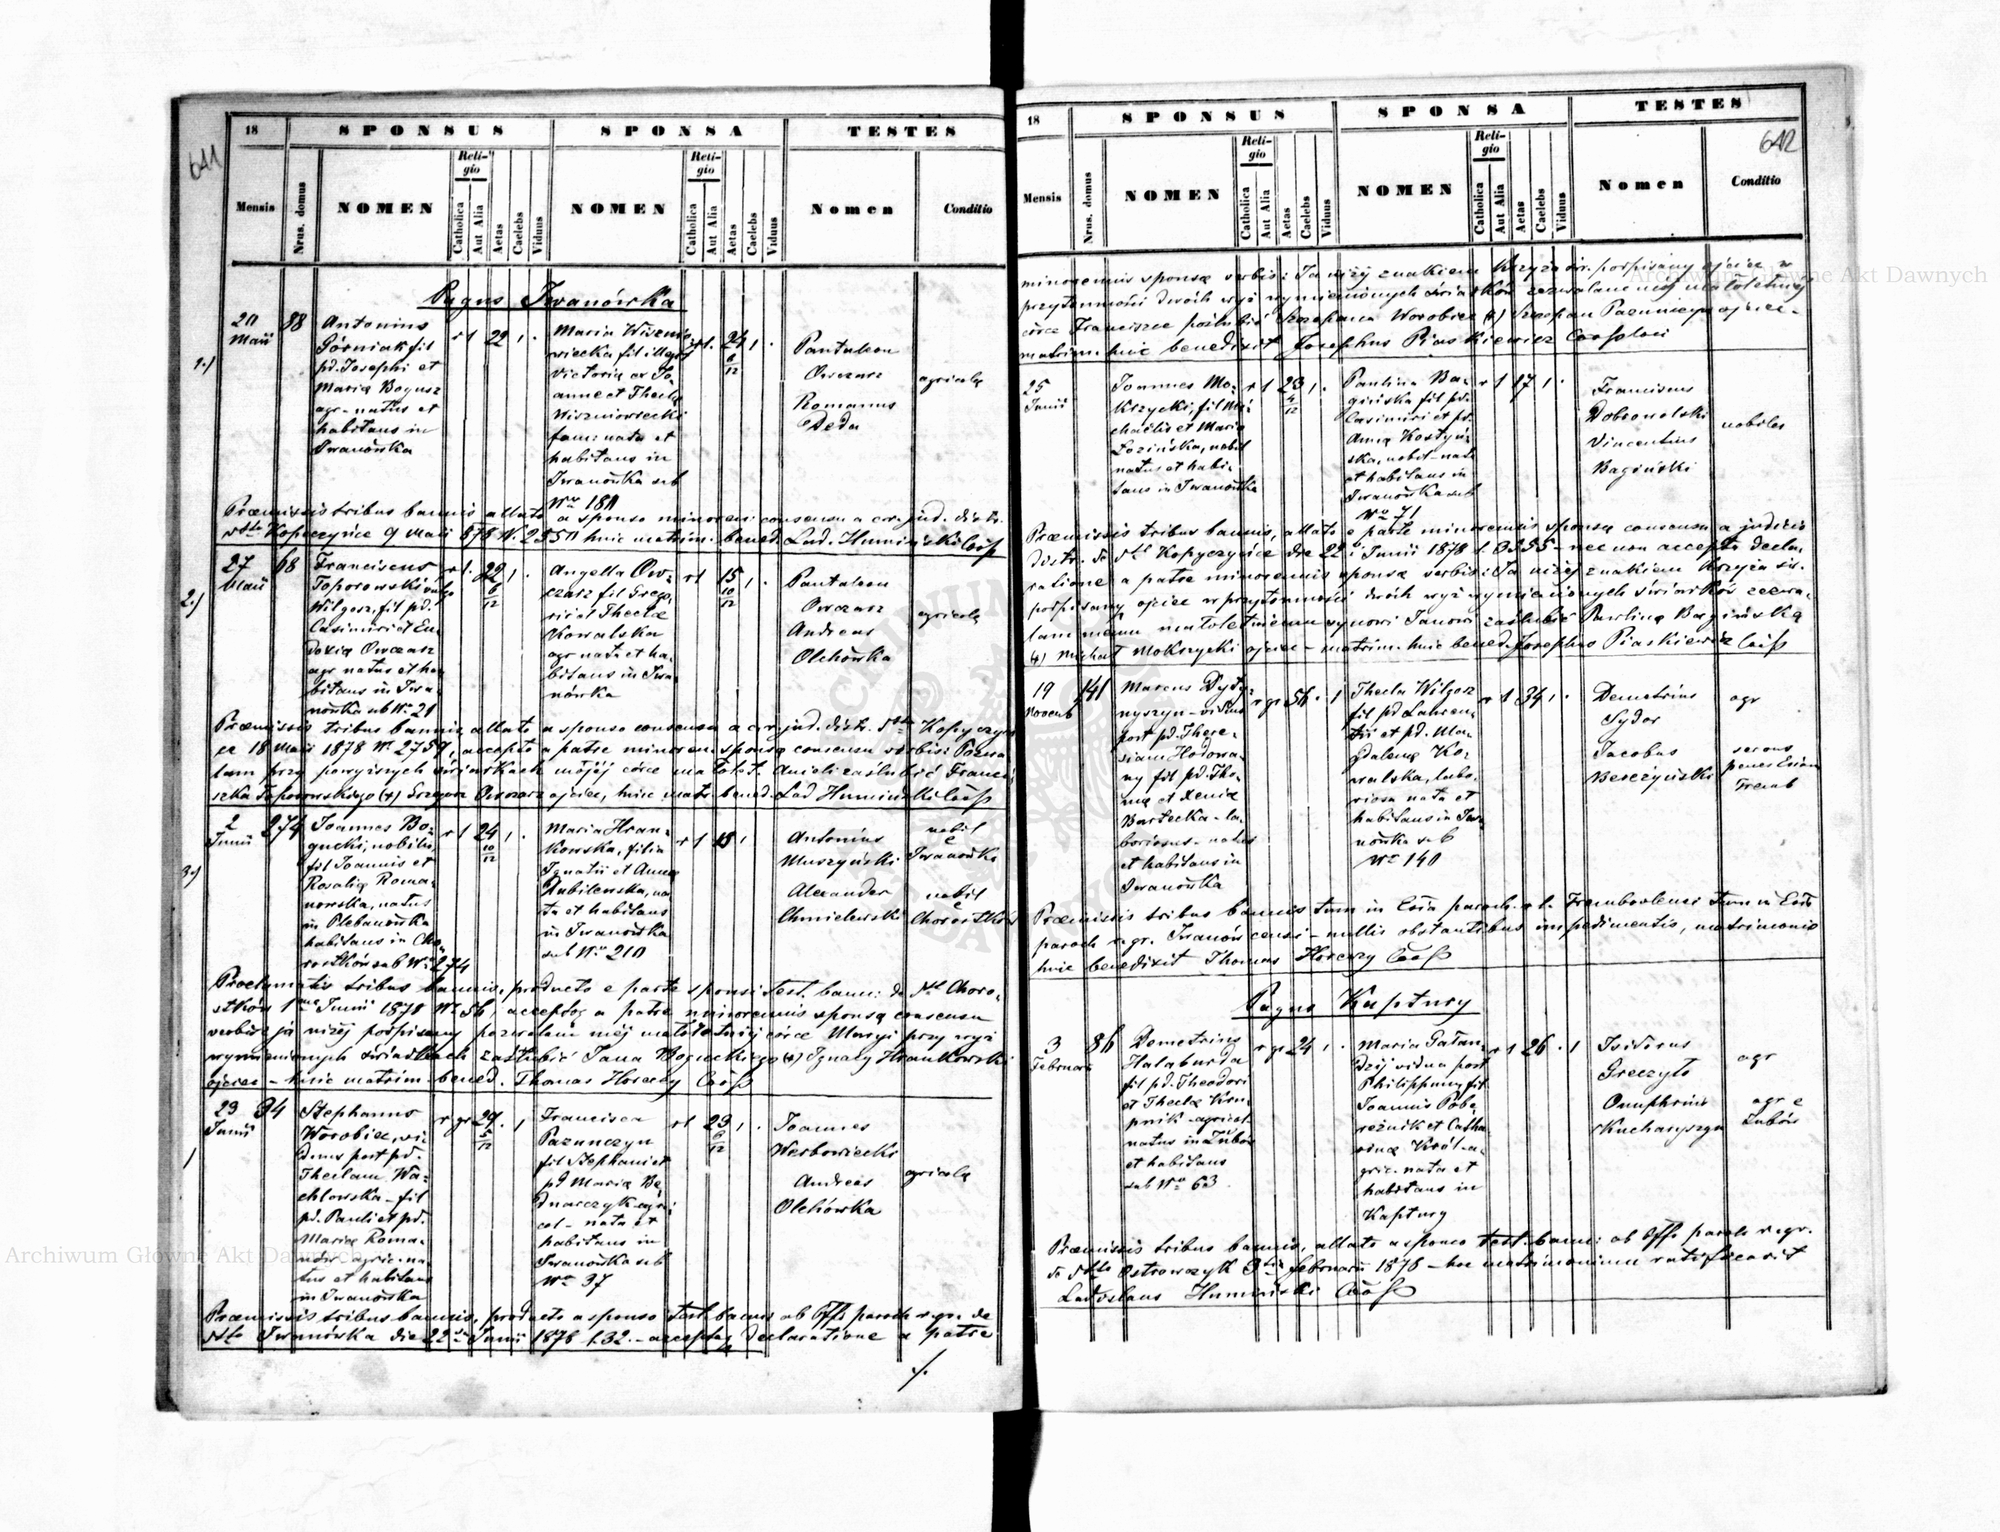 641
18
SPONSUS
SPONSA
TESTES
Mensis
Nrus. domus
NOMEN
Religio
Catholica
Aut Alia
Aetas
Caelebs
Viduus
NOMEN
Religio
Catholica
Aut Alia
Aetas
Caelebs
Viduus
Nomen
Conditio
Pagus Iwanówka
1.)
20
Maii
88
Antonius
Górniak fil
pd. Josephi et
Mariæ Bogusz
agr. natus et
habitans in
Iwanówka
r 1 22 1
Maria Wiszniowiecka fil illeg
Victoriæ ex Joanne et Thecla
Wiszniowiecki
fam: nata et
habitans in
Iwanówka sub
Nro 180
r 1 24 6/12 1
Pantaleon
Owczarz
Romanus
Deda
agricolæ
Præmissis tribus bannis allato a sponso minoreni consensu a c. r. jud. distr.
dtto Kopeczyńce 9 Maii 878 N. 2550 huic matrim. bened. Lad. Humiński Cooß
2.)
27
Maii
68
Franciscus
Toporowski vulgo
Wilgosz, fil pd.
Casimiri et Eudoxiæ Owczarz
agr natus et habitans in Iwanówka sub Nro 21
r 1 22 6/12 1
Angella Owczarz fil Gregorii et Theclæ
Kowalska
agr nata et habitans in Iwanówka
r 1 15 10/12 1
Pantaleon
Owczarz
Andreas
Olchówka
agricolæ
Præmissis tribus bannis allato a sponso consensu a c. r. jud. distr. dtto Kopyczyńce 18 Maii 1878 Nr 2759, accepto a patre minoren sponsæ consensu verbis: Pozwalam przy powyższych świadkach mojéj córce małolet. Anieli zaślubić Franciszka Toporowskiego (+) Grzegorz Owczarz ojciec, huic matr. bened. Lad Humiński Cooß
3.)
2
Junii
274
Joannes Bogucki, nobilis,
fil Joannis et
Rosaliæ Romanowska, natus
in Plebanówka
habitans in Chorostków sub Nro 274
r 1 24 10/12 1
Maria Hrankowska, filia
Ignatii et Annæ
Kubilewska, nata et habitans
in Iwanówka
sub Nro 210
r 1 18 1
Antonius
Muszyński
Alexander
Chmielewski
nobil
e
Iwanówka
nobil
e
Chorostków
Proclamatis tribus bannis, producto e parte sponsi test. bann: de dtt Chorostków 1ma Junii 1878 Nr 56, accepto a patre minorennis sponsæ consensu
verbis: ja niżej podpisany pozwalam méj małoletniéj córce Maryi przy wyż
wymienionych świadkach zaślubić Jana Boguckiego (+) Ignacy Hrankowski
ojciec – huic matrim. bened. Thomas Horeczy Cooß
23
Junii
94
Stephanus
Worobiec, viduus post pd.
Theclam Wachlowska – fil
pd. Pauli et pd.
Mariæ Romanów agric. natus et habitans
in Iwanówka
r gr 29 5/12 . 1
Francisca
Pazunczyn
fil Stephani et
pd Mariæ Bednarczyk agricol – nata et
habitans in
Iwanówka sub
Nro 37
r 1 23 6/12
Joannes
Werbowiecki
Andreas
Olchówka
agricolæ
Præmissis tribus bannis, producto a sponso test. bannis ab Offo paroch r. gr. de
dtto Iwanówka die 22 Junii 1878 l. 32. – accepta declaratione a patre
./.
642
18
SPONSUS
SPONSA
TESTES
Mensis
Nrus. domus
NOMEN
Religio
Catholica
Aut Alia
Aetas
Caelebs
Viduus
NOMEN
Religio
Catholica
Aut Alia
Aetas
Caelebs
Viduus
Nomen
Conditio
minorennis sponsæ verbis: Ja niżej znakiem krzyża św. podpisany ojciec w
przytomności dwóch wyż wymienionych świadków zezwalam méj małoletniéj
córce Franciszce poślubić Szczepana Worobiec (+) Szczepan Pazunczyn ojciec –
matrim. huic benedixit Josephus Piaskiewicz Cooßlaci
25
Junii
Joannes Mokrzycki, fil Michaelis et Mariæ
Łozińska, nobil
natus et habitans in Iwanówka
r 1 23 4/12 1
Paulina Bagińska fil pd.
Casimiri et pd.
Annæ Kostyńska, nobil – nata
et habitans in
Iwanówka sub
Nro 71
r 1 17 1
Franciscus
Dobrowolski
Vincentius
Bagiński
nobiles
Præmissis tribus bannis, allato e parte minorennis sponsæ consensu a judicio
distr. de dtt Kopyczyńce dtto 22 Junii 1878 l. 3355 – nec non accepta declaratione a patre minorennis sponsæ verbis: Ja niżej znakiem krzyża św.
podpisany ojciec w przytomności dwóch wyż wymienionych świadków zezwalam memu małoletniemu synowi Janowi zaślubić Paulinę Bagińską
(+) Michał Mokrzycki ojciec – matrim. huic bened. Josephus Piaskiewicz Cooß
19
Novemb
141
Marcus Dydynyszyn – viduus
post pd. Theresiam Hodowany fil pd. Thomæ et Xeniæ
Bartecka – laboriosus – natus
et habitans in
Iwanówka
r gr 56 . 1
Thecla Wilgosz
fil pd Laurentii et pd. Magdalenæ Kowalska, laboriosa nata et
habitans in Iwanówka sub
Nro 140
r 1 34 1
Demetrius
Sydor
Jacobus
Berezyński
agr
servus
penes Eccam
Tremb
Præmissis tribus bannis tum in Ecclia paroch. r. l. Trembovlensi tum in Eccla
paroch r. gr. Iwanówcensi – nullis obstantibus impedimentis, matrimonio
huic benedixit Thomas Horeczy Cooß
Pagus Kaptury
3
Februar
86
Demetrius
Halaburda
fil pd. Theodori
et Theclæ Krupnik – agricol.
natus in Zubów
et habitans
sub Nro 63
r gr 24 1
Maria Gałandzij vidua post
Philippum fil
Joannis Pobereżnik et Catharinæ Król – agric. nata et
habitans in
Kaptury
r 1 26 . 1
Isidorus
Greczyło
Onuphrius
Kucharyszyn
agr
agr e
Zubów
Præmissis tribus bannis, allato a sponso test. bann: ab Offo paroch r. gr.
de dtto Ostrowczyk 3tia februarii 1878 – hoc matrimonium ratificavit
Ladislaus Humiński Cooß
Archiwum Główne Akt Dawnych
Archiwum Główne Akt Dawnych